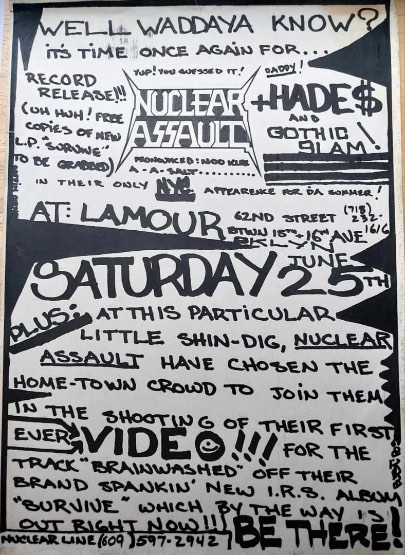 WELL WADDAYA KNOW?
IT'S TIME ONCE AGAIN FOR...
YUP! YOU GUESSED IT!
DADDY!
RECORD
RELEASE!!!
(UH HUH! FREE
COPIES OF NEW
L.P. "SURVIVE"
TO BE GRABBED)
NUCLEAR
ASSAULT
PRONOUNCED: NOO KLEE
A-A-SALT.......
+HADE$
AND
GOTHIC
SLAM!
IN THEIR ONLY NYC APPEARENCE FOR DA SUMMER!
AT: LAMOUR
62ND STREET
BTWN 15TH + 16TH AVE
BKLYN
(718)
232-
1616
JUNE
SATURDAY 25TH
PLUS: AT THIS PARTICULAR
LITTLE SHIN-DIG, NUCLEAR
ASSAULT HAVE CHOSEN THE
HOME-TOWN CROWD TO JOIN THEM
IN THE SHOOTING OF THEIR FIRST
EVER VIDEO!!! FOR THE
TRACK "BRAINWASHED" OFF THEIR
BRAND SPANKIN' NEW I.R.S. ALBUM
"SURVIVE" WHICH BY THE WAY IS
OUT RIGHT NOW!!
BE THERE!
NUCLEAR LINE (609) 597-2942